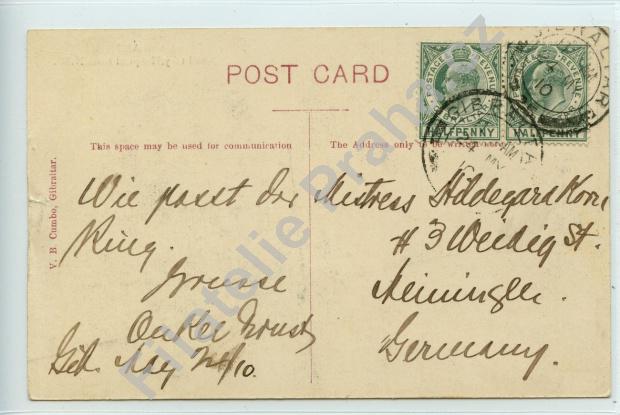 POST CARD
POSTAGE & REVENUE
GIBRALTAR
HALFPENNY
POSTAGE & REVENUE
HALFPENNY
GIBRALTAR
MY
10
GIBRALTAR
MY
10
This space may be used for communication
The Address only to be written here
V. B. Cumbo, Gibraltar.
Wie passt der
Ring.
Grusse
Onkel Ernst
Gib. May 24/10.
Mistress Hildegard Korn
# 3 Weidig St.
Meiningen.
Germany.
Filatelie Praha.cz